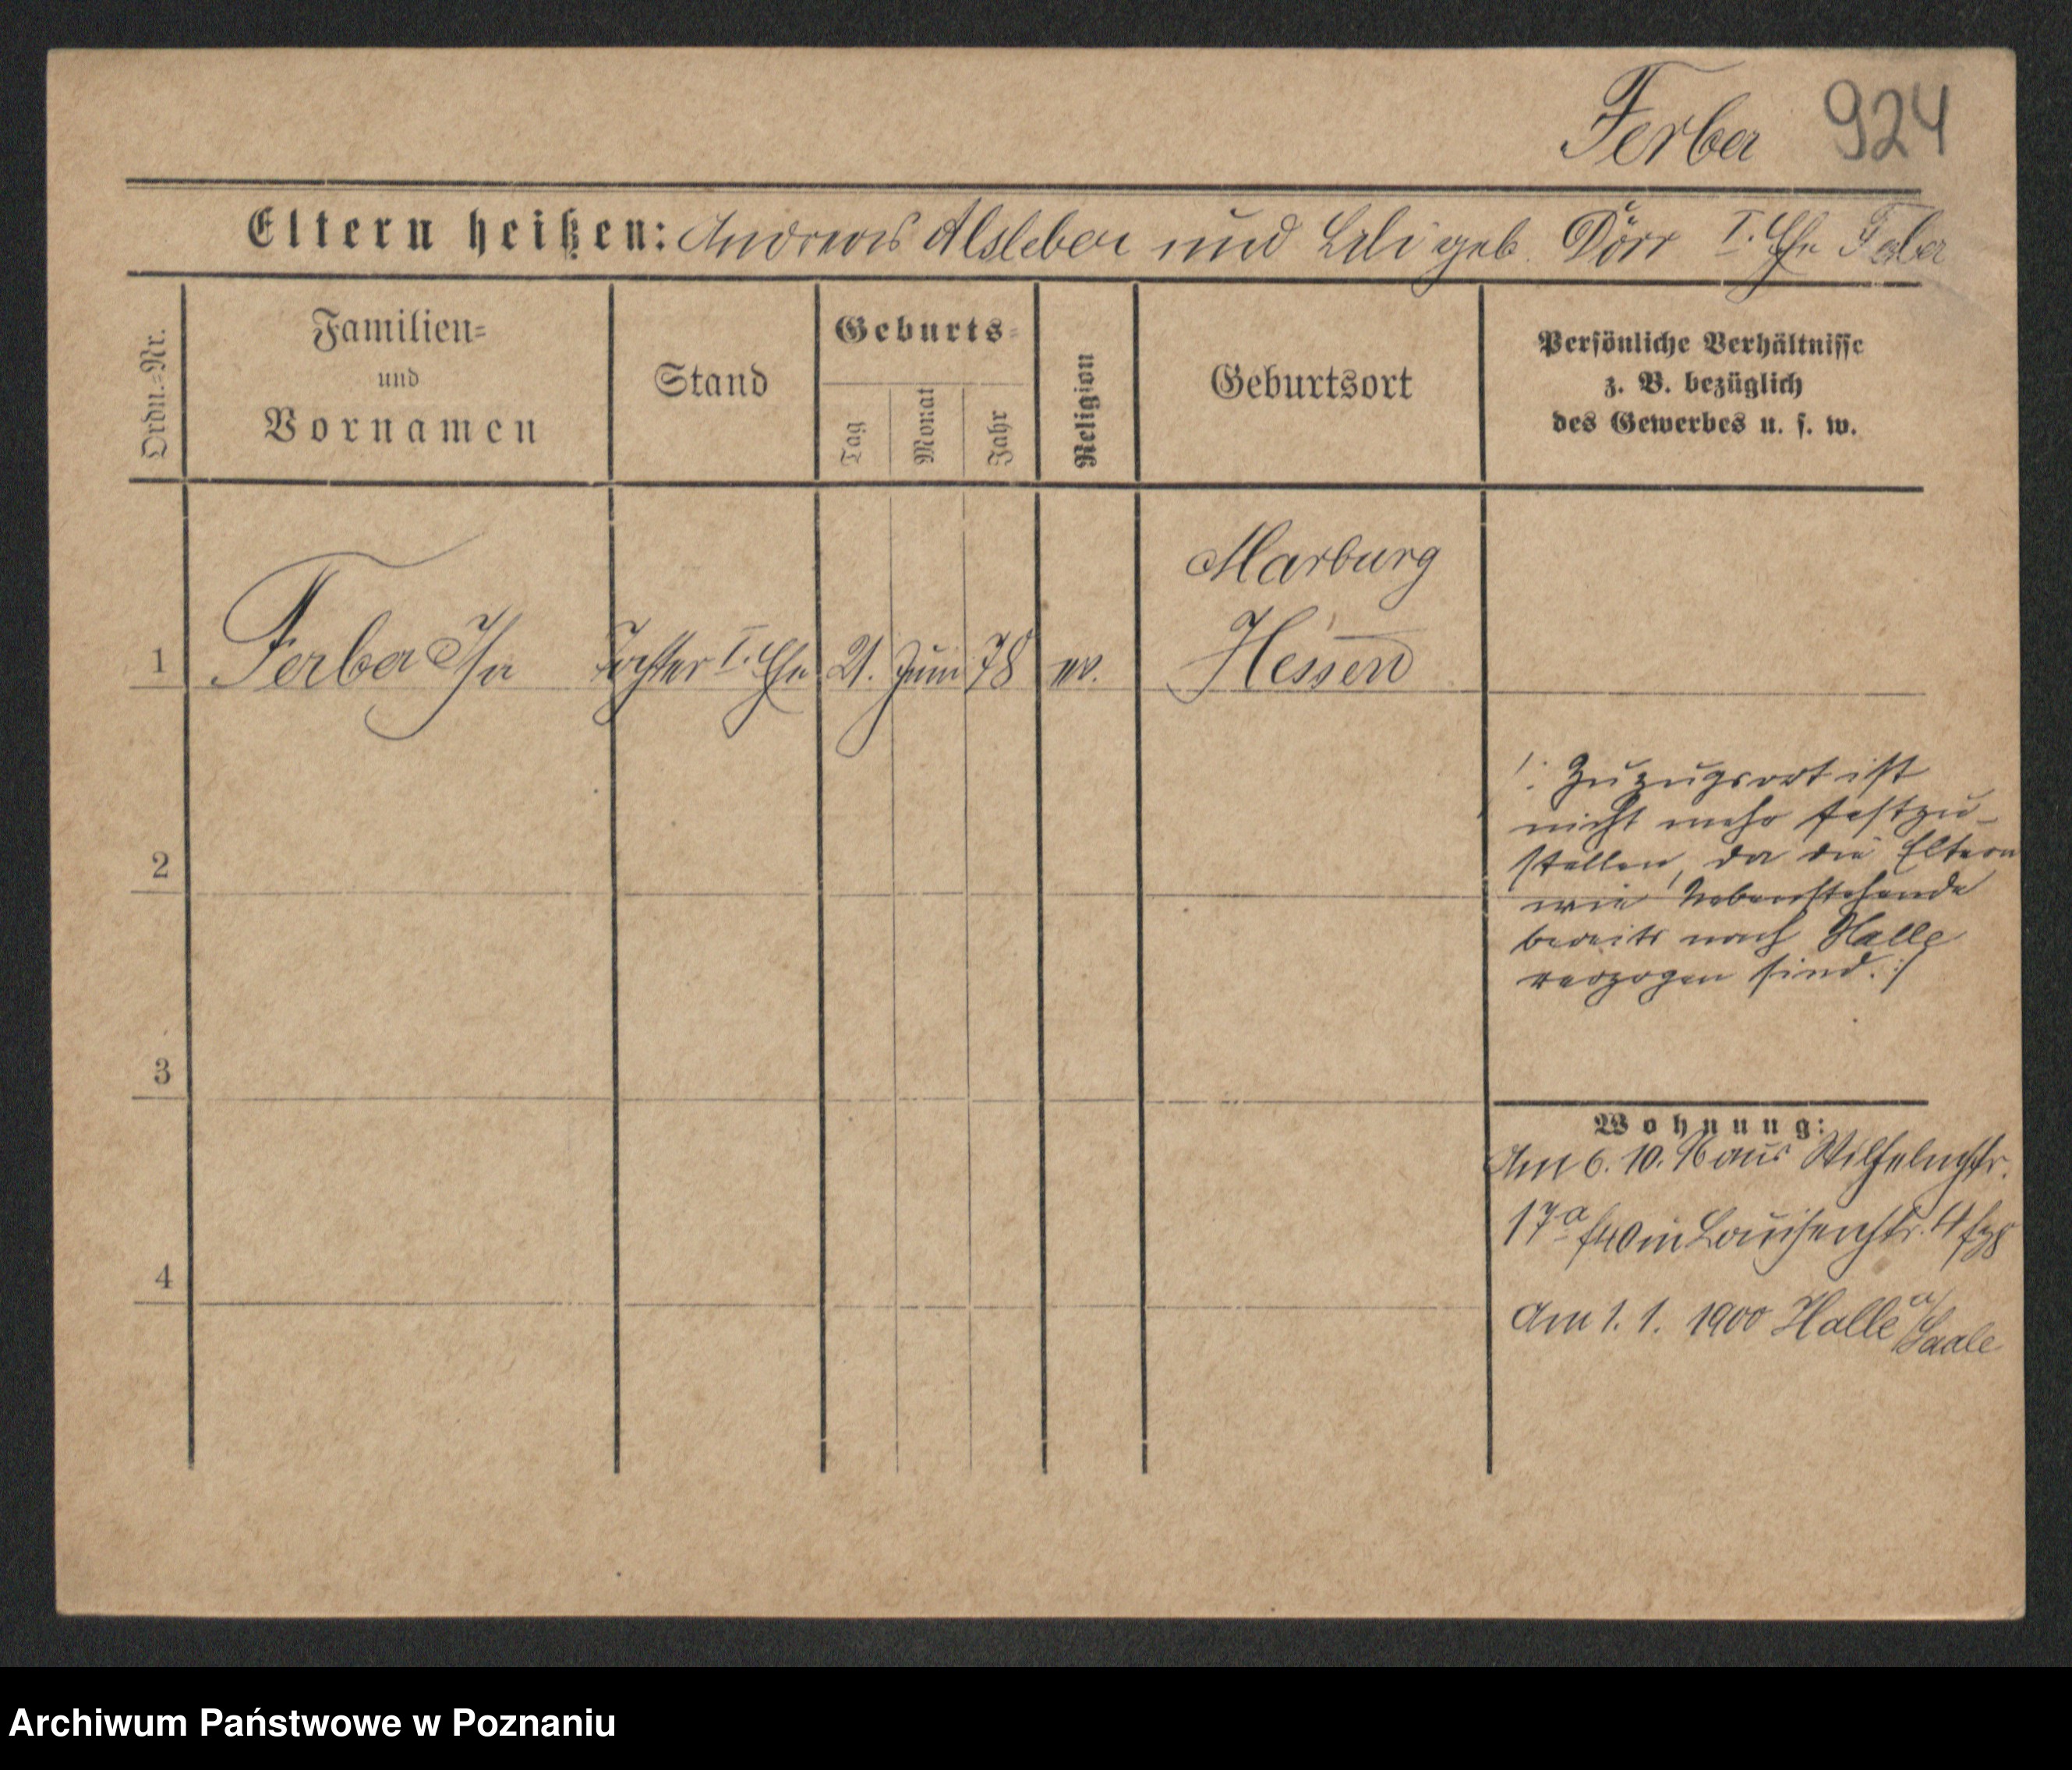 Ferber 924
Eltern heißen: Andreas Alsleber und Lili geb. Dörr I. Ehe Ferber
Ordn.=Nr.
Familien=
und
Vornamen
Stand
Geburts=
Tag
Monat
Jahr
Religion
Geburtsort
Persönliche Verhältnisse
z. B. bezüglich
des Gewerbes u. s. w.
Marburg
1 Ferber Tochter I. Ehe 21. Juni 78 ev. Hessen
/: Zuzugsort ist
nicht mehr festzu-
stellen, da die Eltern
2
wie Nebenstehende
bereits nach Halle
verzogen sind. :/
3
Wohnung:
Am 6. 10. 96 aus Wilhelmstr.
17a in Louisenstr. 4
4
Am 1. 1. 1900 Halle a/Saale
Archiwum Państwowe w Poznaniu